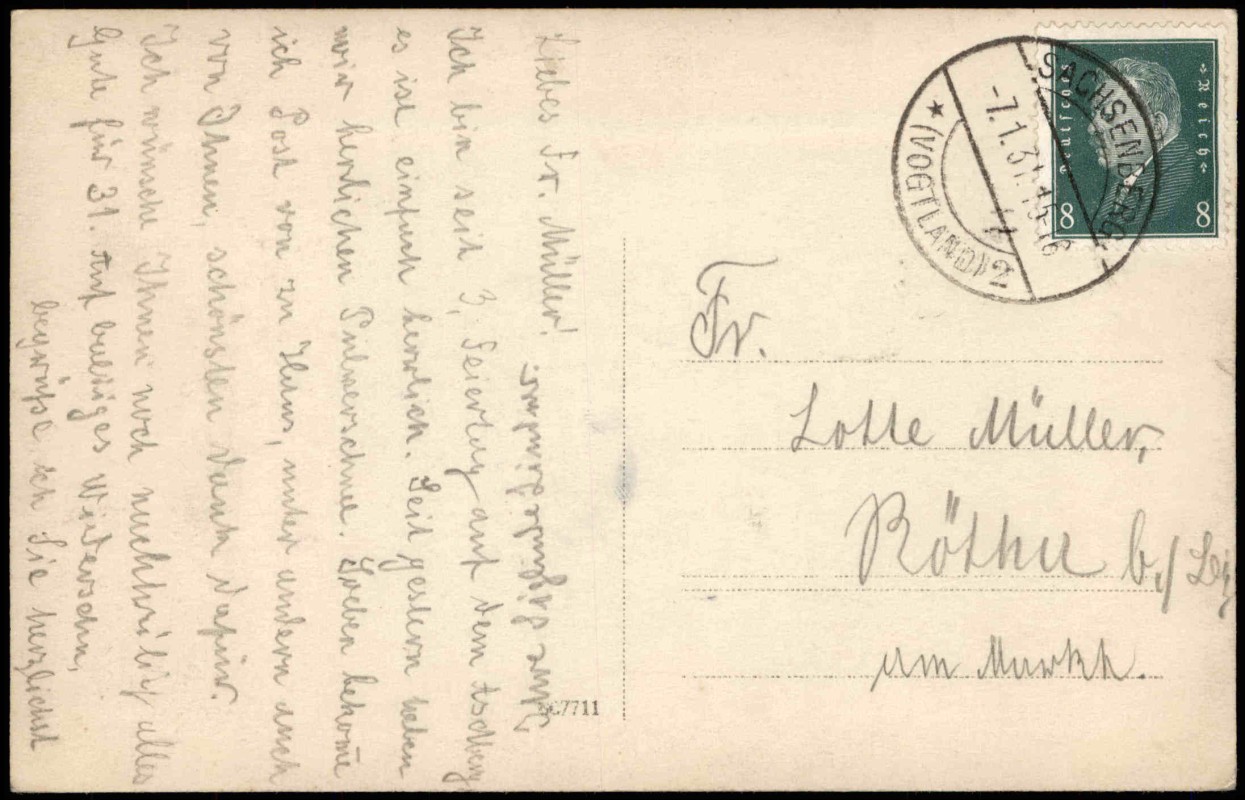 Liebes Fr. Müller!
Ich bin seit 3. Feiertag auf dem Aschberg
es ist einfach herrlich. Seit gestern haben
wir herlichen Pulverschnee. Soeben bekome
ich Post von zu Haus, unter andern auch
von Ihnen, schönsten Dank dafür.
Ich wünsche Ihnen noch nachträglich alles
Gute für 31. Auf baldiges Wiedersehn,
begrüße ich Sie herzlichst
Ihre
7711
SACHSENBERG-
-7.1.31.15-16
★ (VOGTLAND) 2
Deutsches
Reich
8 8
Fr.
Lotte Müller,
Rötha b./ Lpz
am Markt.